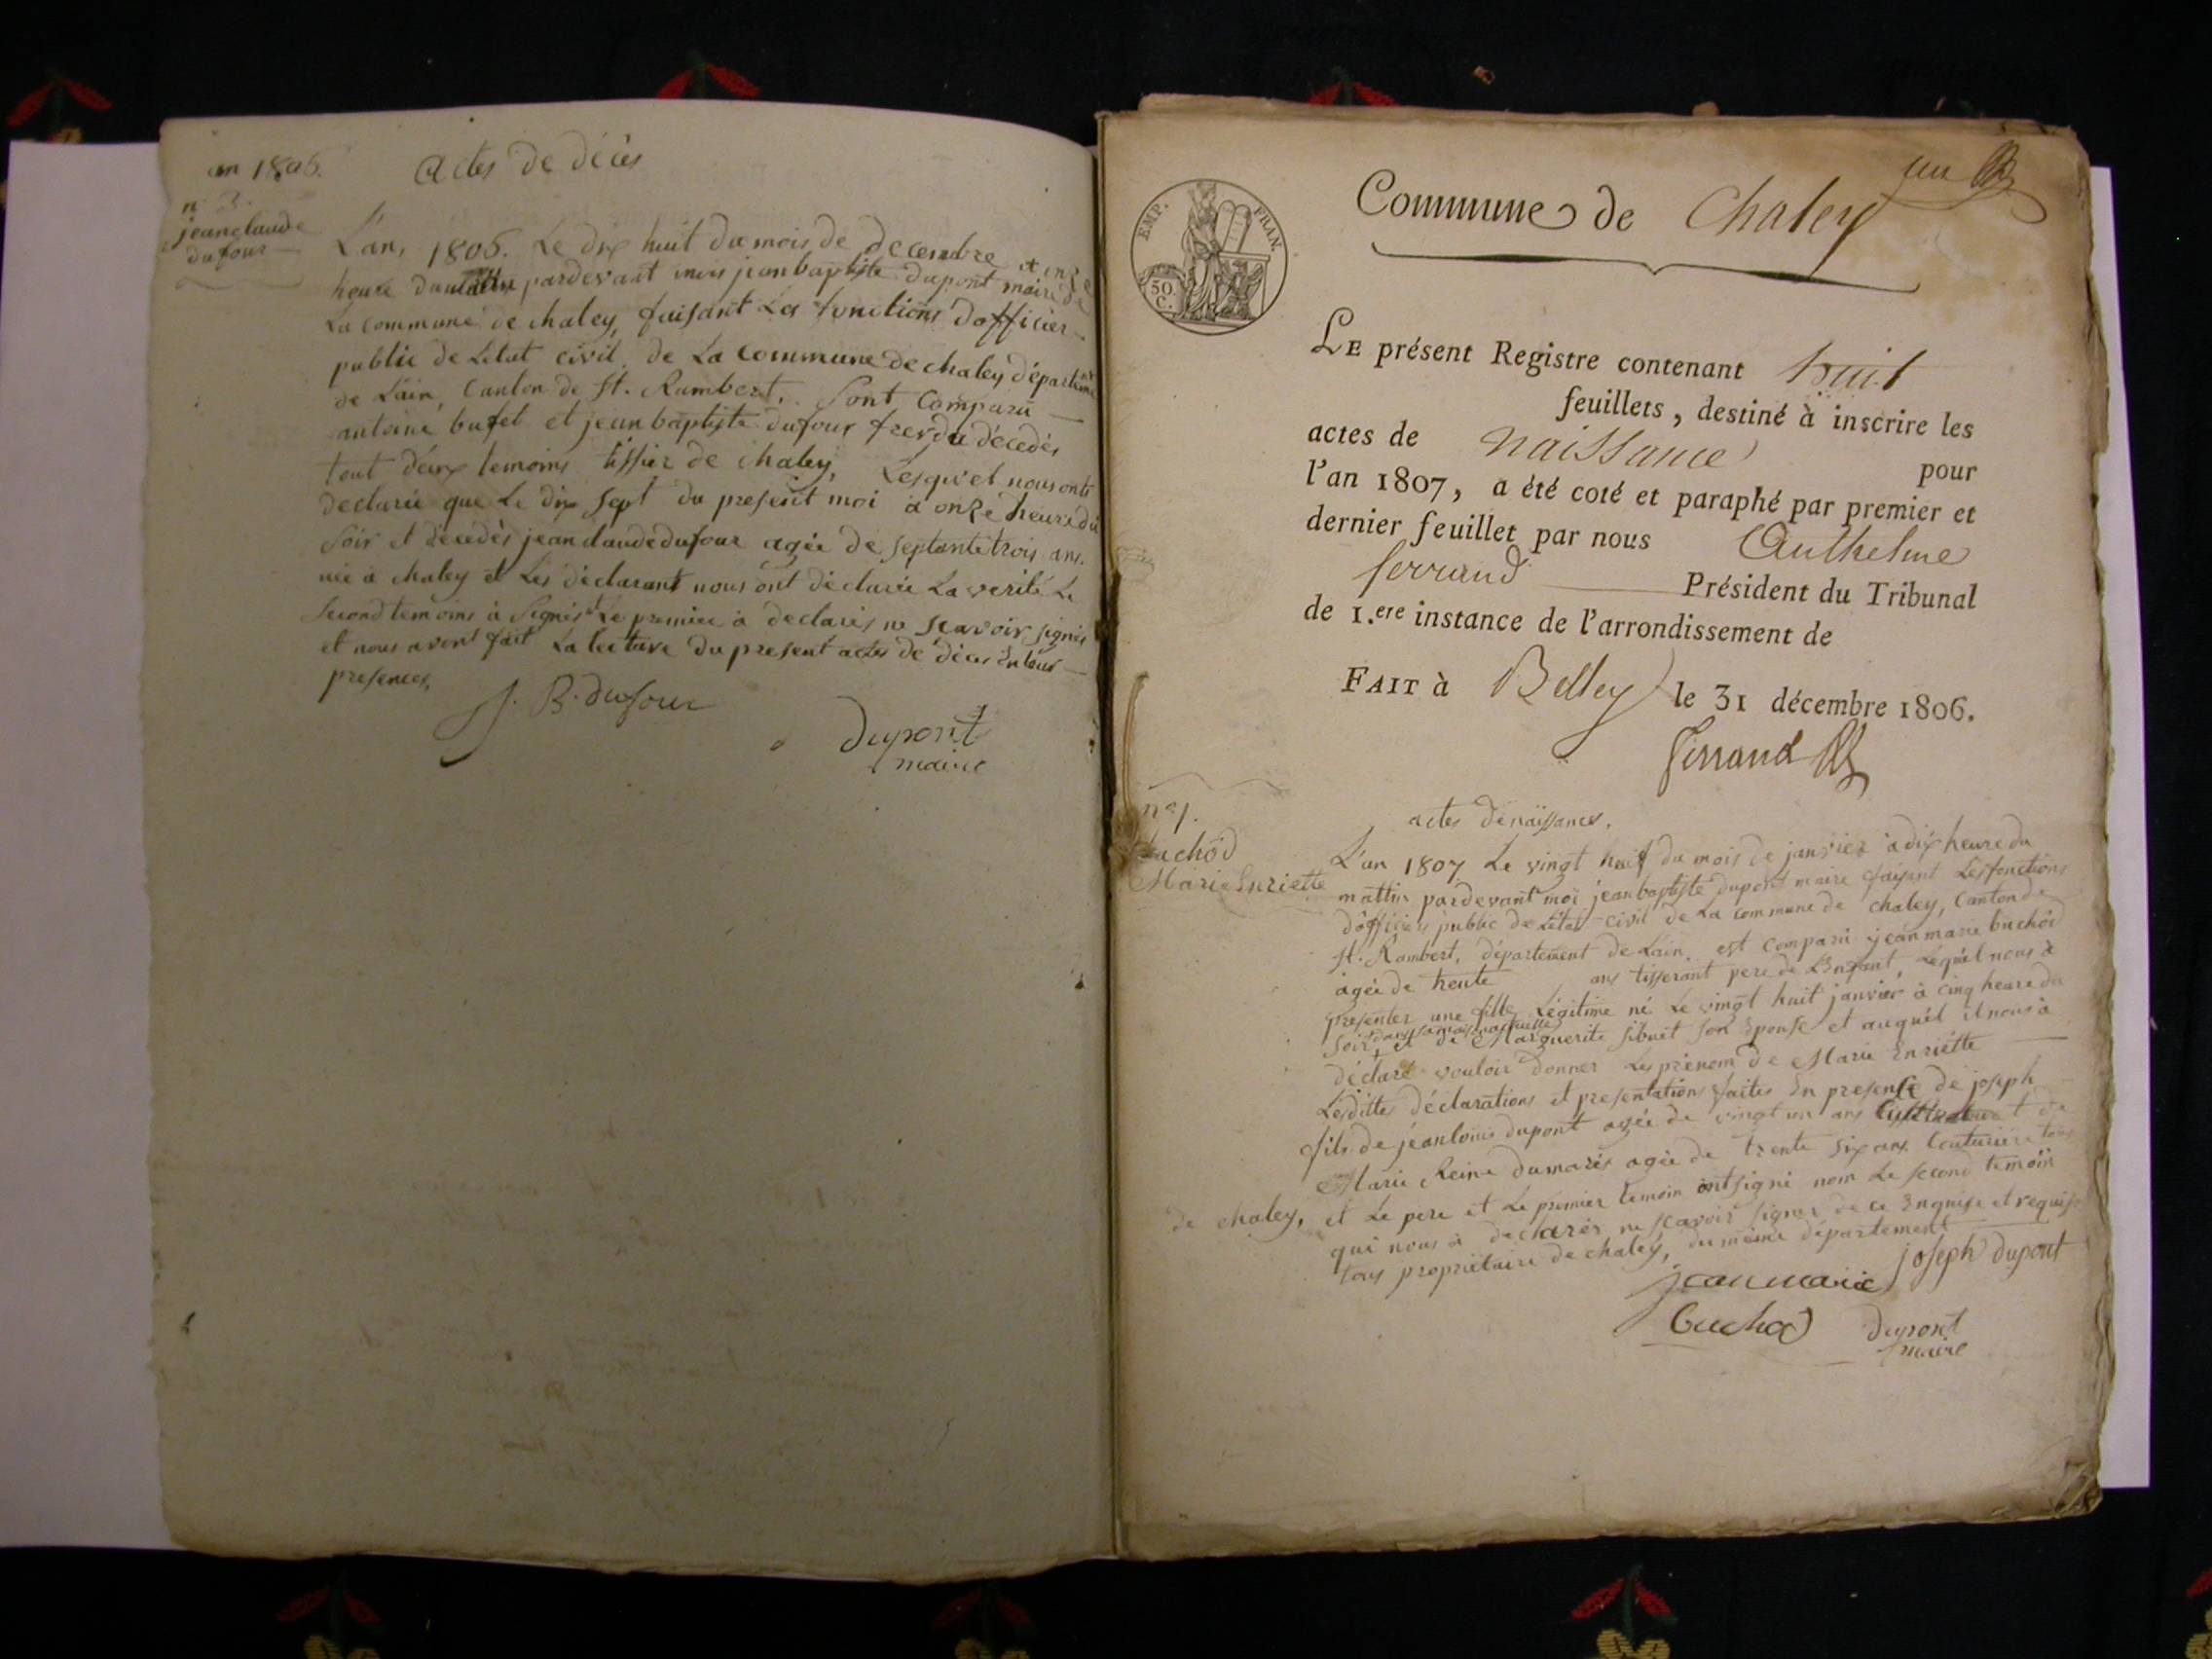 an 1806.
actes de décès
n. 3.
jean claude
dufour
L'an, 1806. Le dix huit du mois de decembre et onze
heure du mattin pardevant mois jean baptiste dupont maire de
La commune de chaley, faisant Les fonctions d'officier
public de L'etat civil de La commune de chaley départemt
de L'ain, Canton de St. Rambert. Sont Comparu
antoine bufet et jean baptiste dufour frere du décedés
tout deux temoins tissier de chaley, Lesquel nous onts
declarée que Le dix sept du present moi à onze heure du
Soir et décedés jean claude dufour agée de septante trois ans.
née à chaley et Les déclarant nous ont déclarée La verité Le
second temoins à signés et Le premier à declarés ne scavoir signés
et nous avont fait La lecture du present actes de décès En leur
presences,
J. B. dufour
Dupont
maire
un
EMP. FRAN.
50 C.
Commune de Chaley
LE présent Registre contenant huit
feuillets, destiné à inscrire les
actes de naissance pour
l'an 1807, a été coté et paraphé par premier et
dernier feuillet par nous Anthelme
ferrand Président du Tribunal
de 1.ere instance de l'arrondissement de
FAIT à Belley le 31 décembre 1806.
ferrand
n° 1.
buchod
Marie Enriette
actes de naissances.
L'an 1807 Le vingt huit du mois de janvier à dix heure du
mattin pardevant moi jean baptiste dupont maire faisant Les fonctions
d'officiers public de L'état civil de La commune de chaley, Canton de
St. Rambert, département de Lain, est comparü jean marie buchod
agée de trente ans tisserant pere de L'Enfant, Lequél nous à
presenter une fille Légitime né Le vingt huit janvier à cinq heure du
dans sa maison
Soir, et de Marguerite sibuet son Epouse et auquél il nous à
déclaré vouloir donner Les prenom de Marie Enriétte
Lesdittes déclarations et presentations faites En presense de joseph
fils de jean louis dupont agée de vingt un ans
Marie Reine dumarés agée de trente six ans Couturiére tous
de chaley, et Le pere et Le premier temoin ont signé nom Le second temoin
qui nous à declarés ne scavoir signer de ce Enquise et requise
tous propriétaire de chaley, du même département
joseph dupont
jean marie
buchod
Dupont
maire